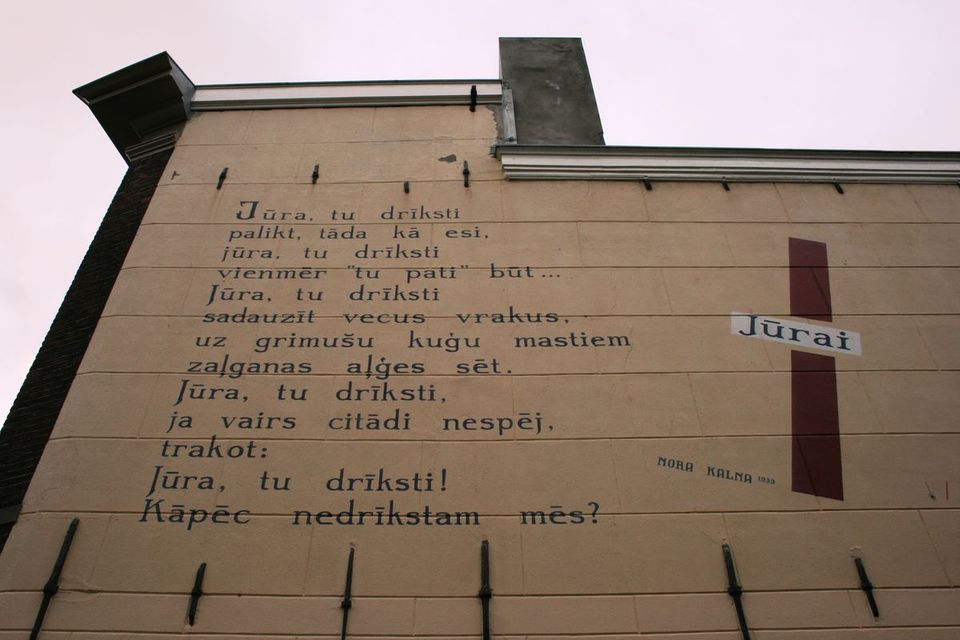 Jūra, tu drīksti
palikt, tāda kā esi,
jūra, tu drīksti
vienmēr "tu pati" būt...
Jūra, tu drīksti
sadauzīt vecus vrakus,
uz grimušu kuģu mastiem
zaļganas aļģes sēt.
Jūra, tu drīksti,
ja vairs citādi nespēj,
trakot:
Jūra, tu drīksti!
Kāpēc nedrīkstam mēs?
Jūrai
NORA KALNA